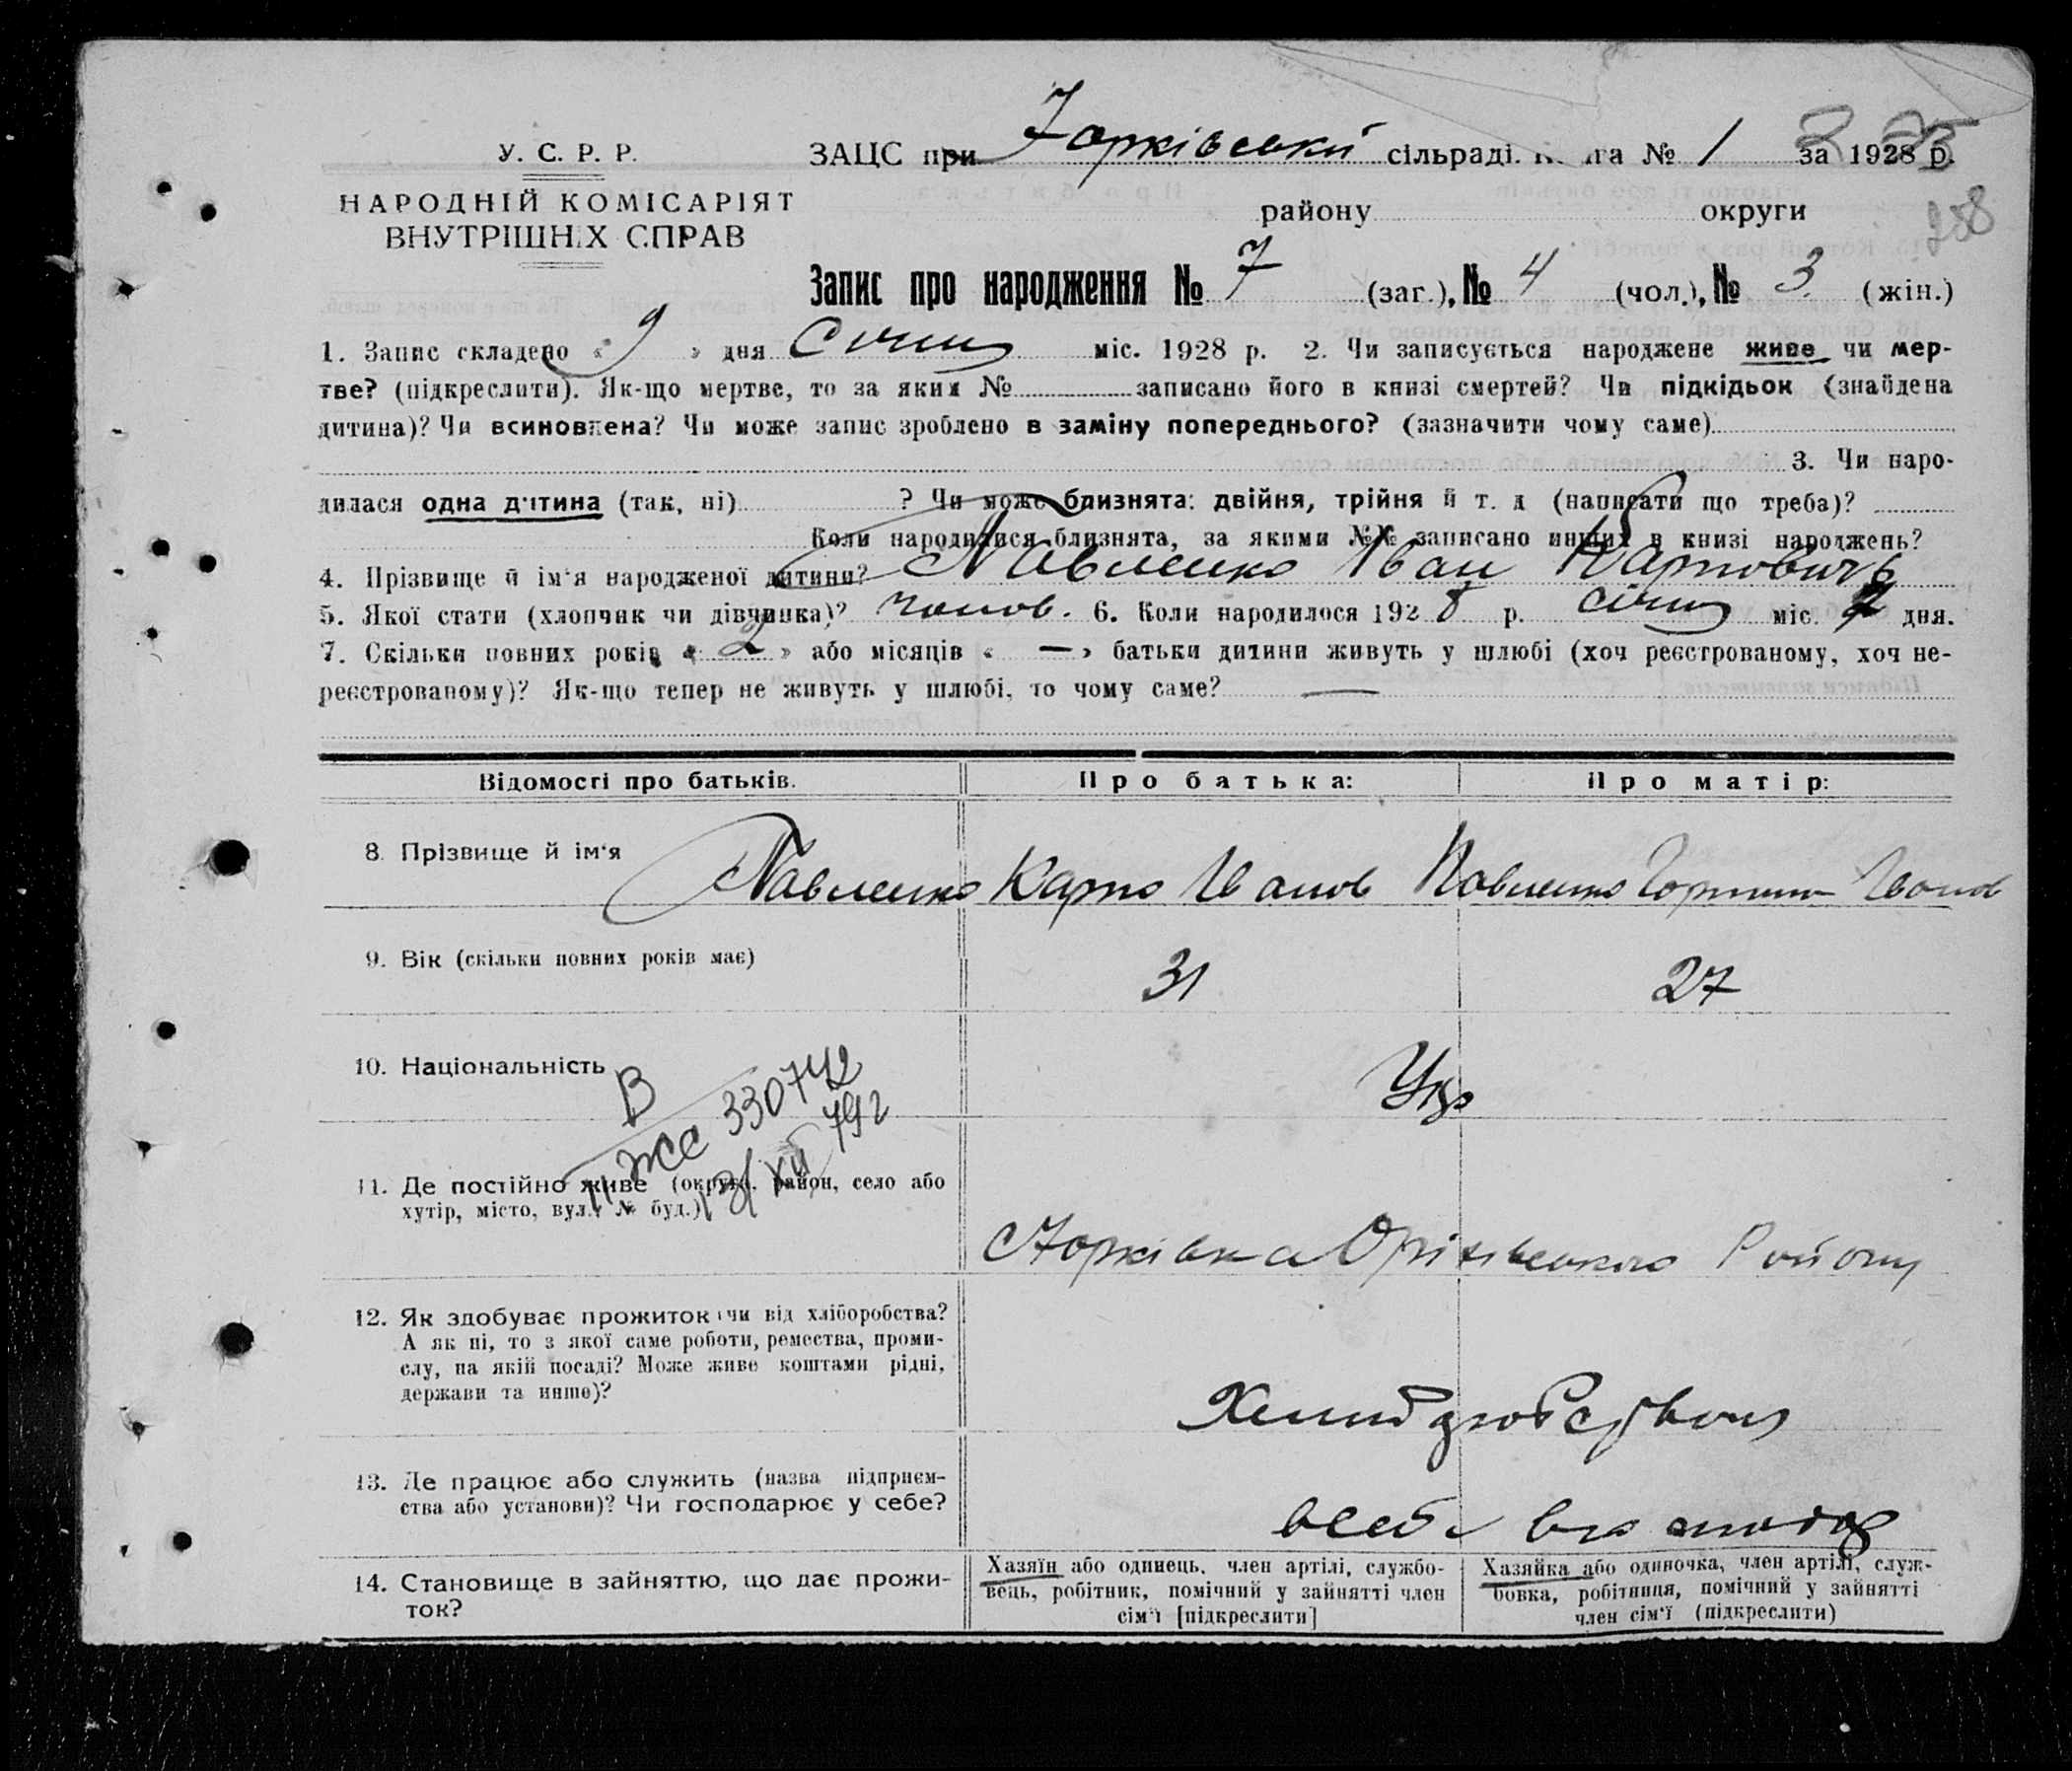 У. С. Р. Р.
НАРОДНІЙ КОМІСАРІЯТ
ВНУТРІШНІХ СПРАВ
ЗАЦС при сільраді. Книга № 1 за 1928 р.
району округи
258
Запис про народження № 7 (заг.), № 4 (чол.), № 3 (жін.)
1. Запис складено « 9 » дня Січня міс. 1928 р. 2. Чи записується народжене живе чи мер-
тве? (підкреслити). Як-що мертве, то за яким № записано його в книзі смертей? Чи підкідьок (знайдена
дитина)? Чи всиновлена? Чи може запис зроблено в заміну попереднього? (зазначити чому саме)
3. Чи наро-
дилася одна дитина (так, ні) ? Чи може близнята: двійня, трійня й т. д (написати що треба)?
Коли народилися близнята, за якими №№ записано инших в книзі народжень?
4. Прізвище й ім'я народженої дитини? Павленко Іван Карпович
5. Якої стати (хлопчик чи дівчинка)? чолов. 6. Коли народилося 1928 р. січня міс. дня.
7. Скільки повних років « 2 » або місяців « — » батьки дитини живуть у шлюбі (хоч реєстрованому, хоч не-
реєстрованому)? Як-що тепер не живуть у шлюбі, то чому саме? —
Відомості про батьків. Про батька: Про матір:
8. Прізвище й ім'я Павленко Карпо Іванов Павленко Іванов
9. Вік (скільки повних років має) 31 27
10. Національність Укр
В
ЖС 330742
11. Де постійно живе (округа, район, село або
хутір, місто, вул. № буд.)
Району
12. Як здобуває прожиток чи від хліборобства?
А як ні, то з якої саме роботи, ремества, проми-
слу, на якій посаді? Може живе коштами рідні,
держави та инше)?
13. Де працює або служить (назва підприєм-
ства або установи)? Чи господарює у себе?
14. Становище в зайняттю, що дає прожи-
ток?
Хазяїн або одинець, член артілі, службо-
вець, робітник, помічний у зайнятті член
сім'ї [підкреслити]
Хазяйка або одиночка, член артілі, служ-
бовка, робітниця, помічний у зайнятті
член сім'ї (підкреслити)